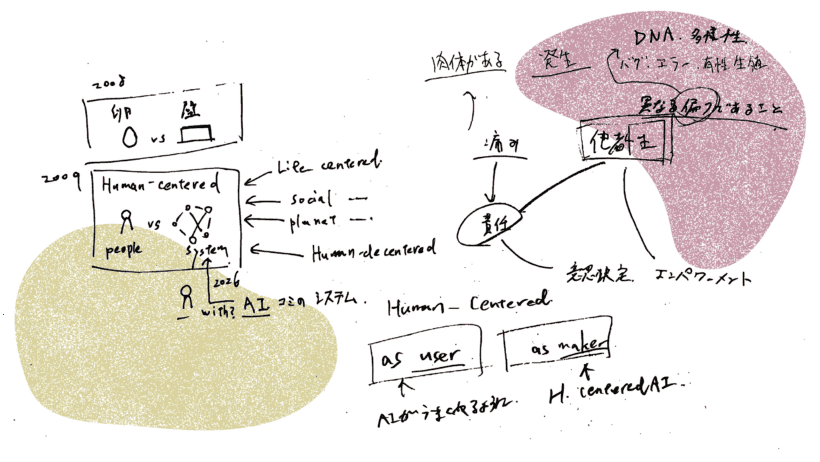 2008
卵 壁
vs
2009
Human-centered
vs
people system
Life centered
social ―
planet ―
Human-decentered
2026
with? AI コミのシステム.
肉体がある
発生
DNA. 多様性.
バグ. エラー. 有性生殖
異なる偏りであること
痛み
他者性
責任
意思決定. エンパワーメント
Human-Centered
as user
as maker
H. centered AI.